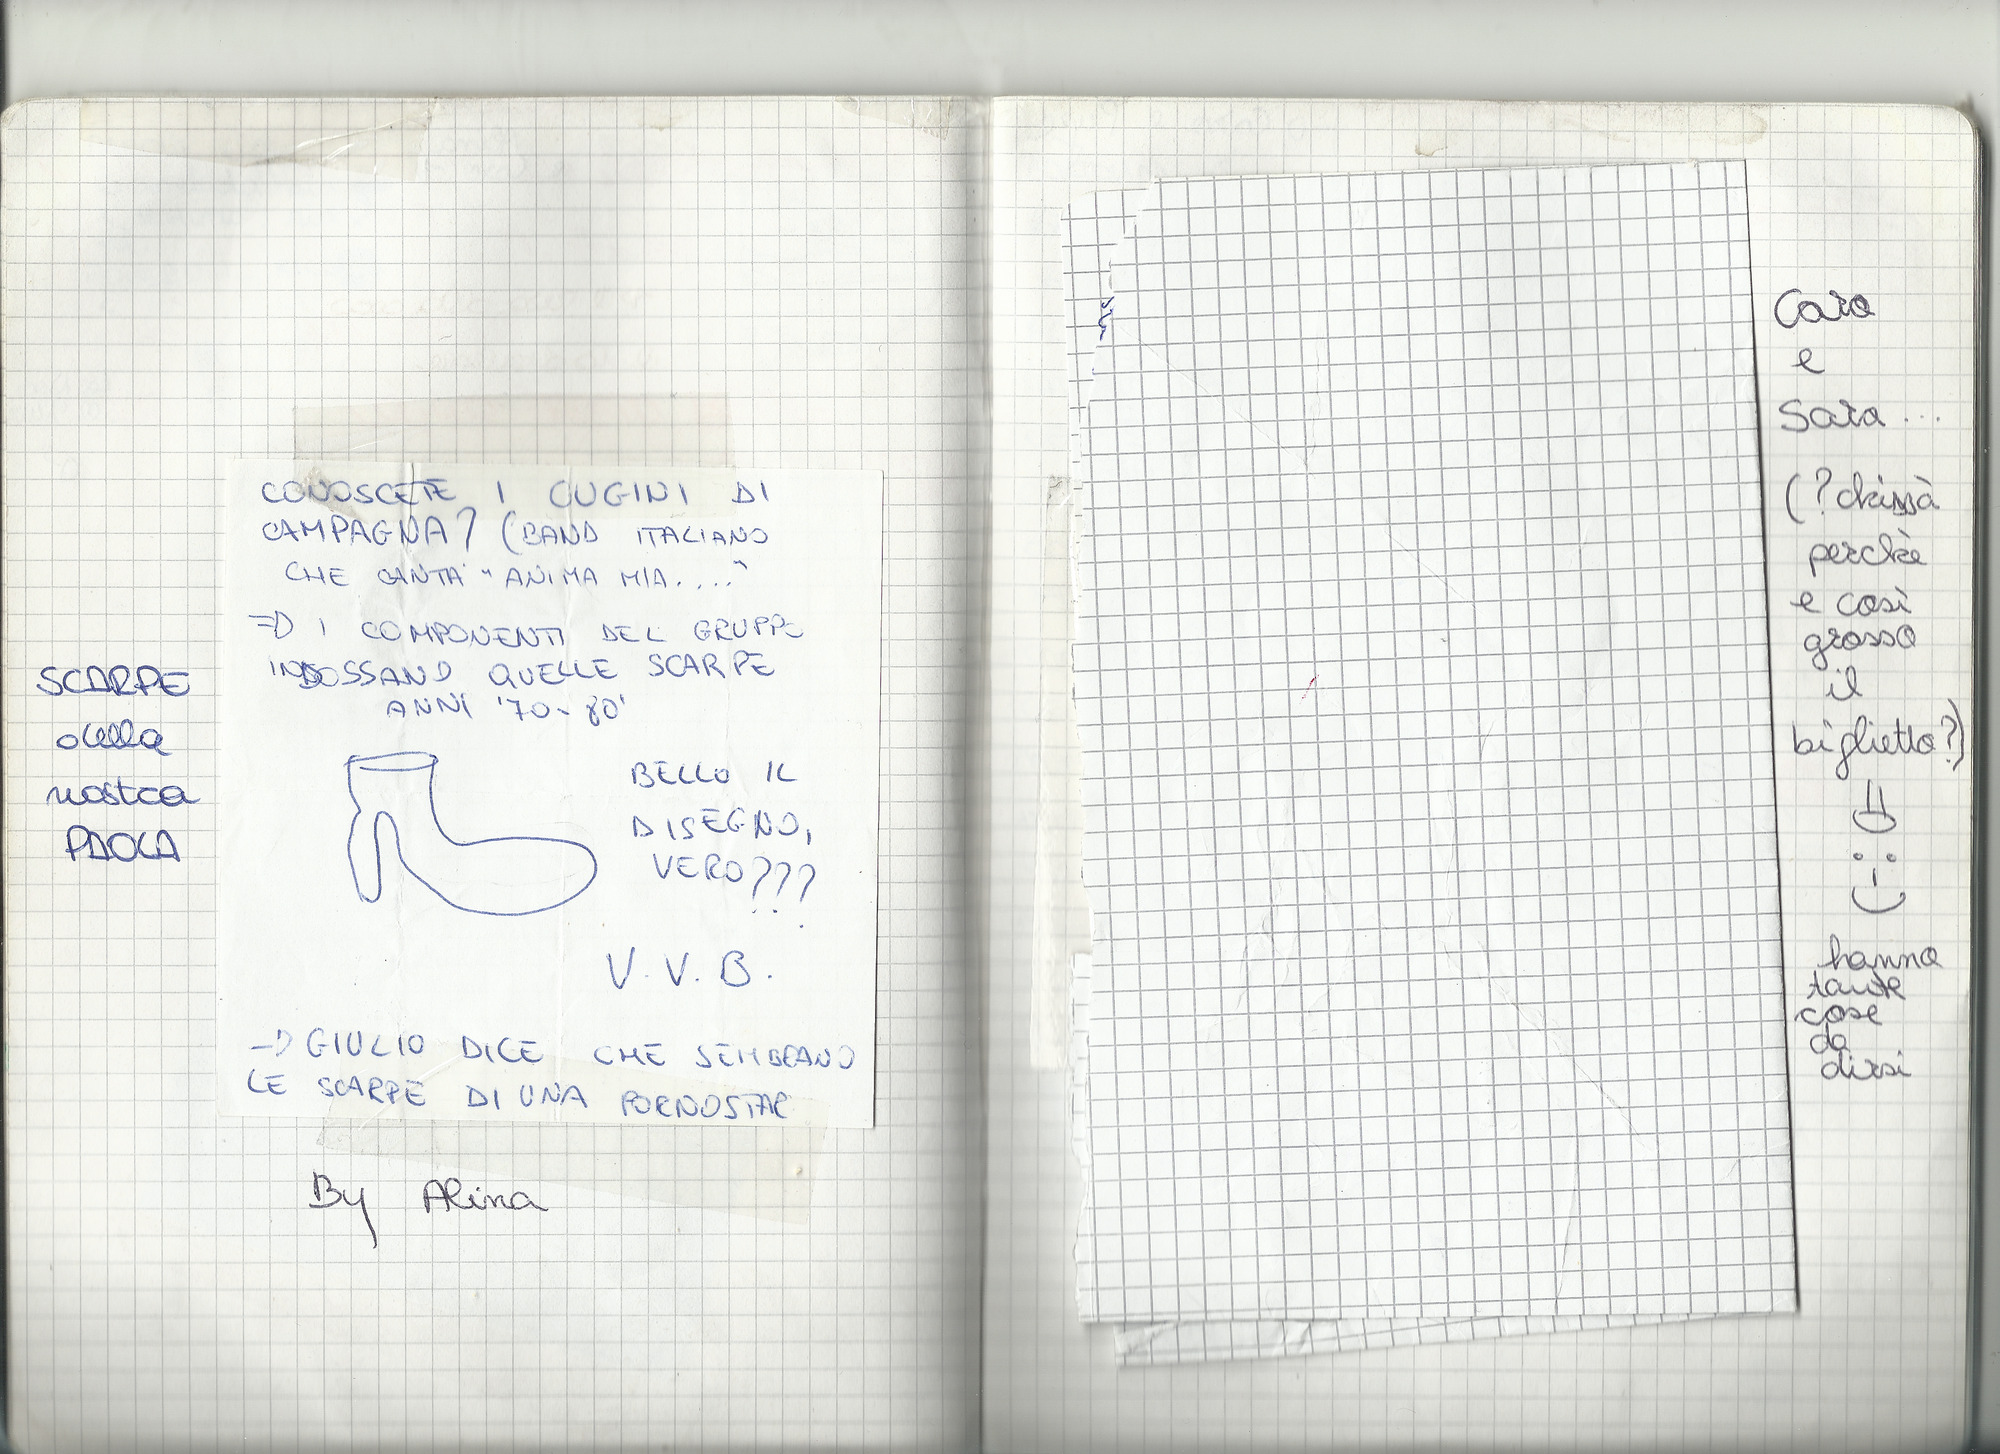 SCARPE
della
nostra
PAOLA
CONOSCETE I CUGINI DI
CAMPAGNA? (BAND ITALIANO
CHE CANTA "ANIMA MIA....“
=D I COMPONENTI DEL GRUPPO
INDOSSANO QUELLE SCARPE
ANNI '70-80'
BELLO IL
DISEGNO,
VERO???
V.V.B.
-D GIULIO DICE CHE SEMBRANO
LE SCARPE DI UNA PORNOSTAR
By Alina
Cara
e
Sara...
(? chissà
perchè
e così
grosso
il
biglietto?)
hanno
tante
cose
da
dirsi